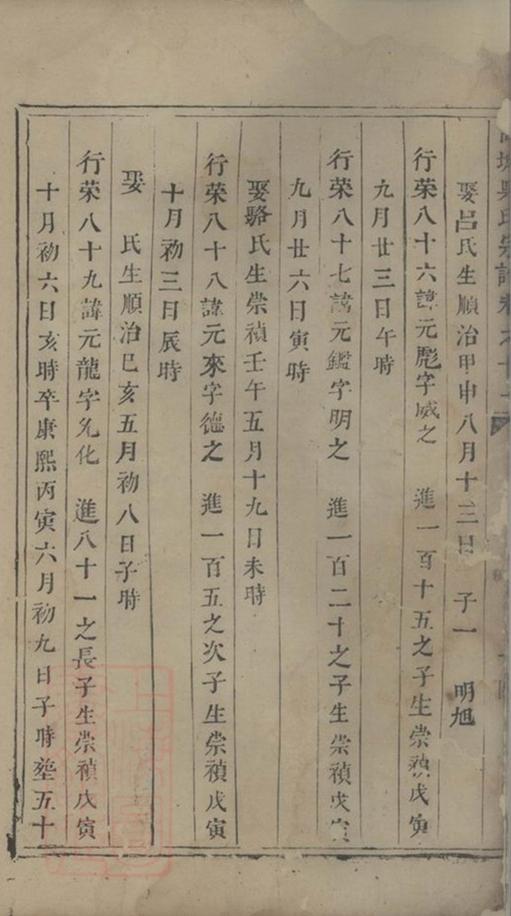 氏宗譜卷之十
娶呂氏生順治甲申八月十三日 子一 明旭
行荣八十六諱元彪字威之 進一百十五之子生崇禎戊寅
九月廿三日午時
行荣八十七諱元鑑字明之 進一百二十之子生崇禎戊寅
九月廿六日寅時
娶駱氏生崇禎壬午五月十九日未時
行荣八十八諱元來字德之 進一百五之次子生崇禎戊寅
十月初三日辰時
娶 氏生順治已亥五月初八日子時
行荣八十九諱元龍字允化 進八十一之長子生崇禎戊寅
十月初六日亥時卒康熙丙寅六月初九日子時塟五十